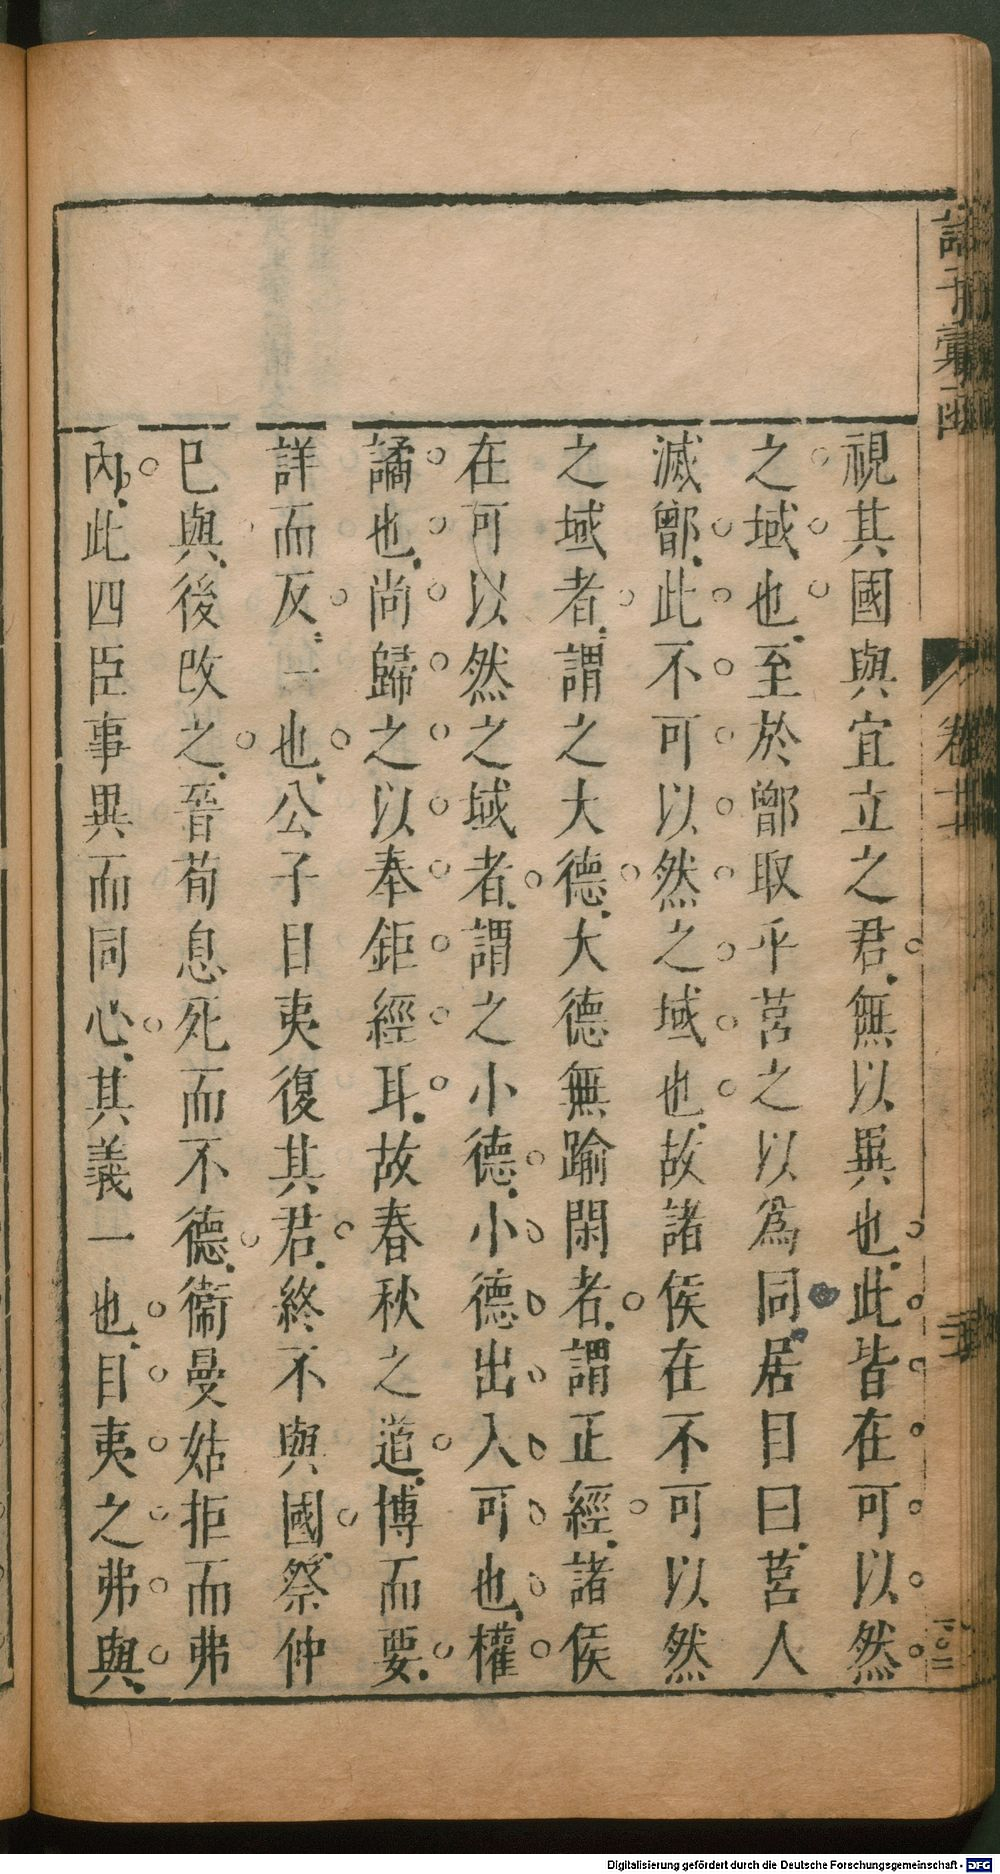 諸子彙函
卷廿
三
視其國與宜立之君無以異也此皆在可以然
之域也至於鄫取乎莒之以爲同居目曰莒人
滅鄫此不可以然之域也故諸侯在不可以然
之域者謂之大德大德無踰閑者謂正經諸侯
在可以然之域者謂之小德小德出入可也權
譎也尚歸之以奉鉅經耳故春秋之道博而要
詳而反一也公子目夷復其君終不與國祭仲
已與後改之晉荀息死而不德衞曼姑拒而弗
內此四臣事異而同心其義一也目夷之弗與
Digitalisierung gefördert durch die Deutsche Forschungsgemeinschaft - DFG